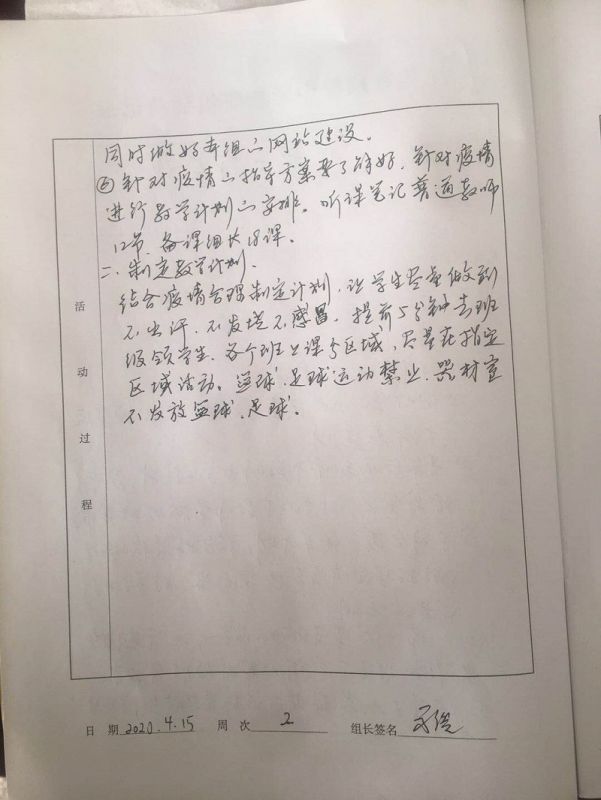 同时做好本组的网站建设。
⑥针对疫情的指导方案要了解好，针对疫情
进行教学计划的安排。听课笔记普通教师
12节，备课组长18课。
二、制定教学计划。
结合疫情合理制定计划，让学生尽量做到
不出汗，不发烧不感冒。提前5分钟去班
级领学生，各个班上课分区域，尽量在指定
区域活动。篮球，足球运动禁止，器材室
不发放篮球，足球。
活
动
过
程
日 期 2020.4.15 周 次 2 组长签名